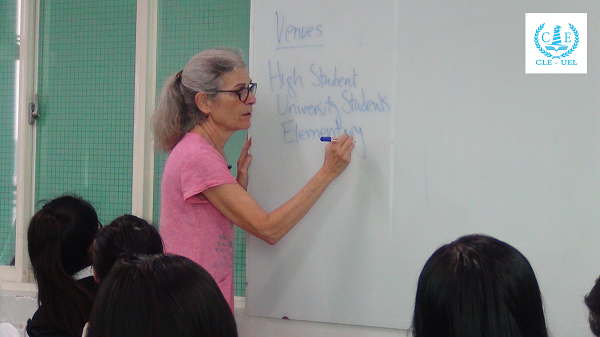 Venues
High Student
University Students
Elementary
C E
CLE - UEL